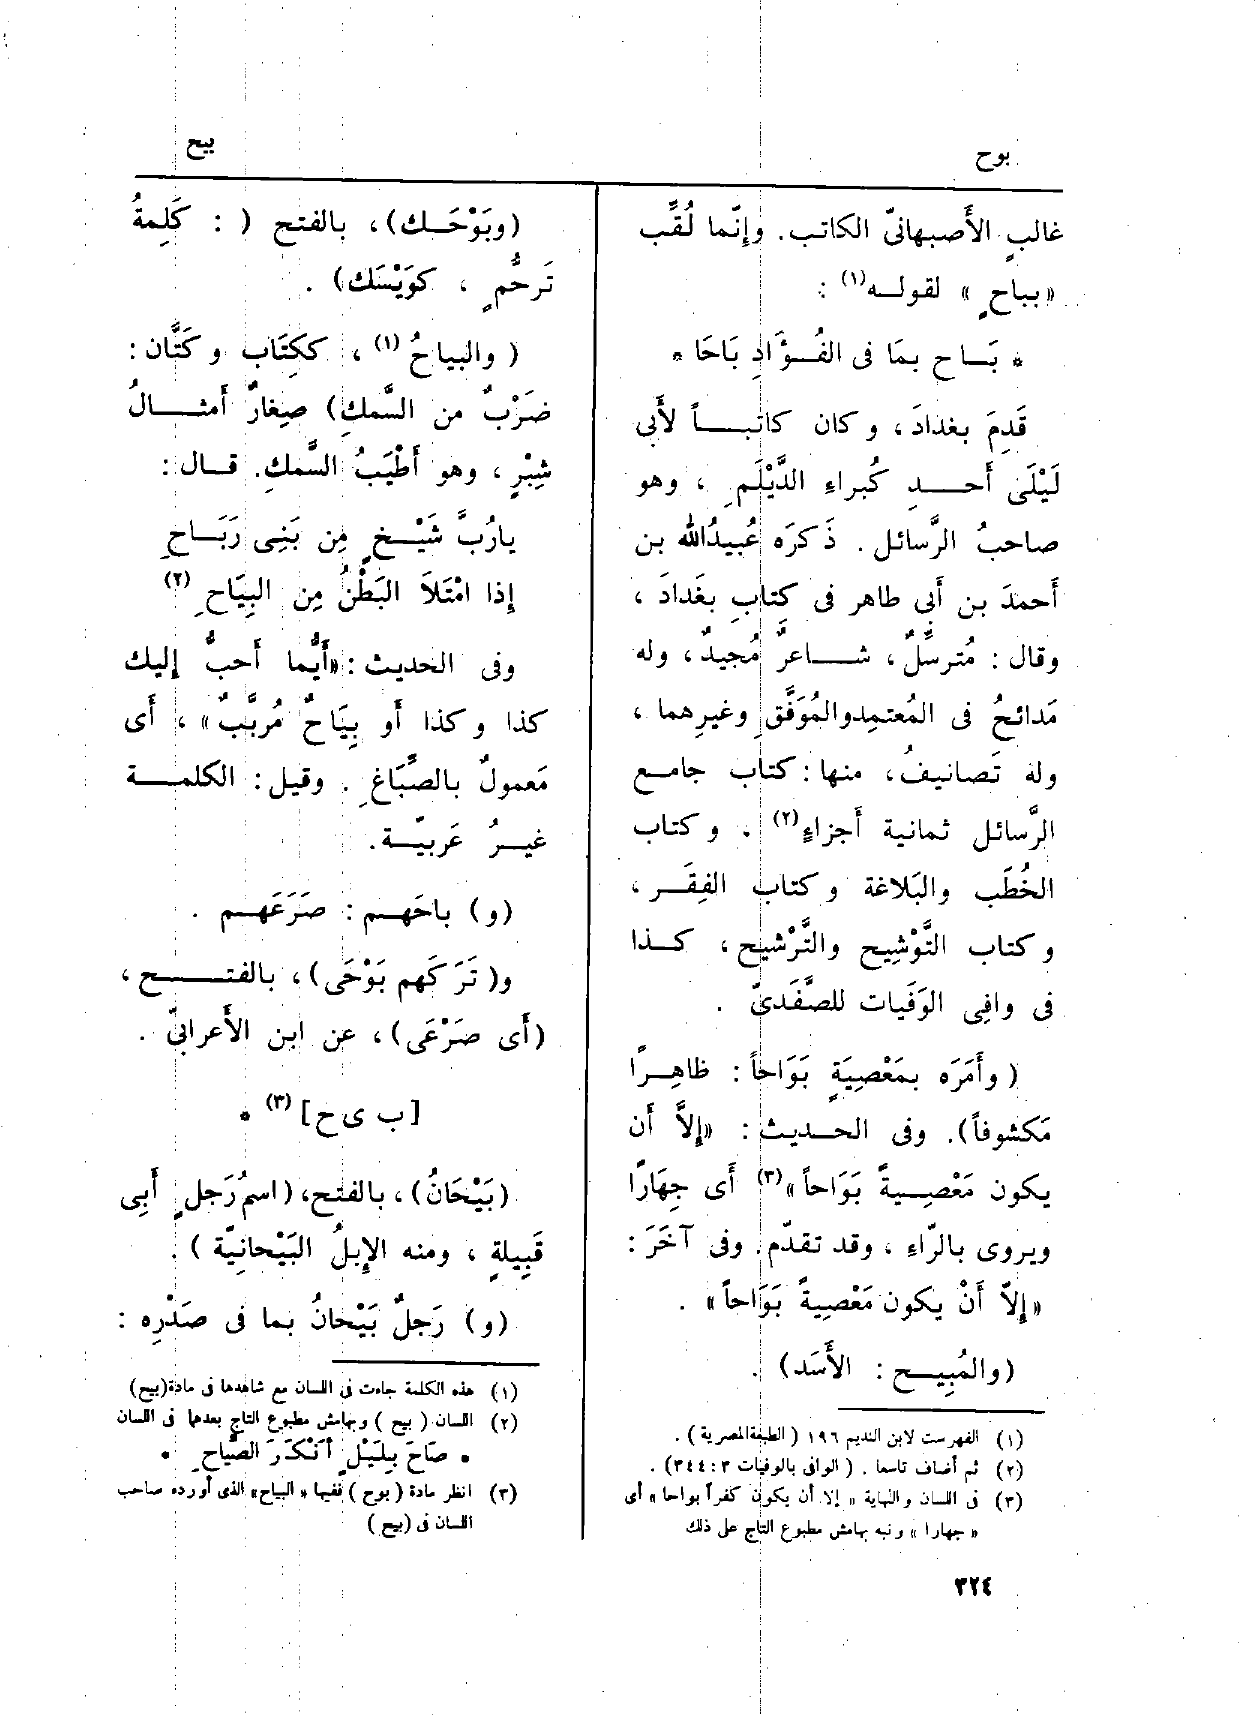 بوح
بيح
غالبٍ الأَصبهانىّ الكاتب. وإنّما لُقِّب
«بباحٍ» لقولـه(١) :
* بَـاح بمَا فى الفُـؤَادِ بَاحَا *
قَدِمَ بغدادَ ، وكان كاتبـاً لأَبى
لَيْلَى أَحـدِ كُبراءِ الدَّيْلَمِ ، وهو
صاحبُ الرَّسائل . ذَكرَه عُبيدُالله بن
أَحمدَ بن أَبى طاهر فى كِتابِ بغَدادَ ،
وقال : مُترسِّلٌ ، شـاعرٌ مُجيدٌ ، وله
مَدائحُ فى المُعتمِدوالمُوَفَّقِ وغيرِهما ،
وله تَصانيفُ، منها : كتاب جامـع
الرَّسائل ثمانية أَجزاءٍ(٢) . وكتاب
الخُطَب والبَلاغة وكتاب الفِقَـر ،
وكتاب التَّوْشِيح والتَّرْشيح ، كـذا
فى وافِى الوَفَيات للصَّفَدىّ .
( وأَمَرَه بمَعْصِيَةٍ بَوَاحاً : ظاهِـرًا
مَكشوفاً). وفى الحـديث : «إِلاَّ أَن
يكون مَعْصِـيةً بَوَاحاً»(٣) أَى جِهَارًا
ويروى بالرّاءِ ، وقد تقدّم. وفى آخَرَ :
«إِلاّ أَنْ يكون مَعْصِيةً بَوَاحاً» .
(والمُبِيـح : الأَسَد) .
(١) الفهرست لابن النديم ١٩٦ (الطبعةالمصرية) .
(٢) ثم أضاف تاسعا . (الوافى بالوفيات ٣ : ٣٤٤) .
(٣) فى اللسان والنهاية « إلا أن يكون كفراً بواحا » أى
« جهارا » ونبه بهامش مطبوع التاج على ذلك
(وبَوْحَـك)، بالفتح ( : كَلِمةُ
تَرحُّمٍ ، كوَيْسَك) .
( والبياحُ(١) ، ككِتَاب وكَتَّان :
ضَرْبٌ من السَّمكِ) صِغارٌ أَمثـالُ
شِبْرٍ ، وهو أَطْيَبُ السَّمكِ. قـال :
يارُبَّ شَيْـخٍ مِن بَنِى رَبَـاحِ
إِذا امْتَلاَ البَطْنُ مِن البِيَاحِ (٢)
وفى الحديث : «أَيُّما أَحبُّ إِليك
كذا وكذا أَو بِيَاحٌ مُربَّبٌ» ، أَى
مَعمولٌ بالصِّبَاغِ . وقيل : الكلمـة
غيـرُ عَربيّـة.
(و) باحَهـم : صَرَعَهـم .
و(تَرَكَهم بَوْحَى)، بالفتـح ،
(أَى صَرْعَى) ، عن ابن الأَعرابىّ .
[ب ى ح] (٣) *
(بَيْحَانُ) ، بالفتح، (اسمُ رَجلٍ أَبِى
قَبِيلةٍ ، ومنه الإِبلُ البَيْحانِيّة ) .
(و) رَجلٌ بَيْحانُ بما فى صَدْرِه :
(١) هذه الكلمة جاءت فى اللسان مع شاهدها فى مادة(بيح)
(٢) اللسان ( بيح ) وبهامش مطبوع التاج بعدها فى اللسان
* صَاحَ بِلَيْلٍ أَنْكَرَ الصِّيَاحِ *
(٣) انظر مادة (بوح) ففيها «البياح» الذى أورده صاحب
اللسان فى (بيح)
٣٢٤